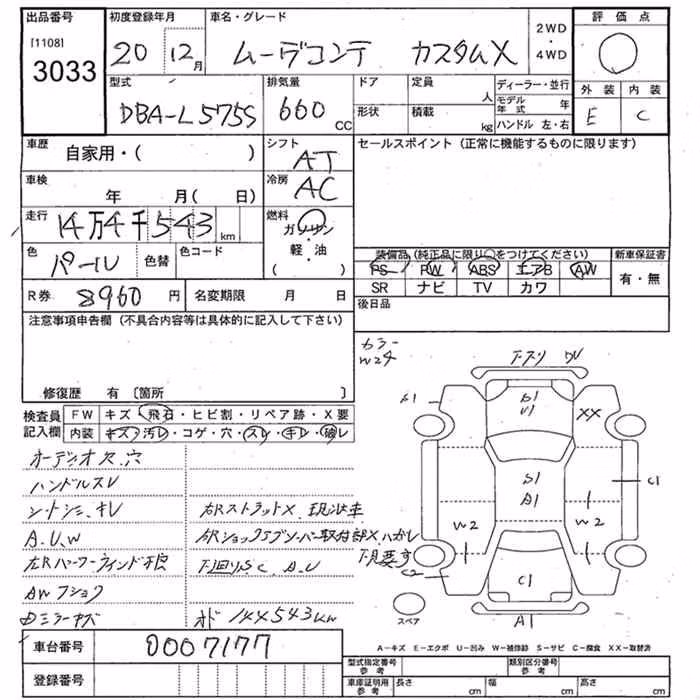 出品番号 初度登録年月 車名・グレード 2WD・4WD 評価点
[1108] 3033 20 12月 ムーヴコンテ カスタムX
型式 排気量 ドア 定員 人 ディーラー・並行 外装 内装
DBA-L575S 660 CC 形状 積載 kg モデル年式 年 ハンドル 左・右 E C
車歴 自家用・( ) シフト AT セールスポイント(正常に機能するものに限ります)
車検 年 月( 日) 冷房 AC
走行 14万4千543 km 燃料 ガソリン・軽・油 ( )
色 パール 色替 色コード 装備品(純正品に限り○をつけてください) 新車保証書
PS PW ABS エアB AW 有・無
SR ナビ TV カワ
R券 8960円 名変期限 月 日 後日品
注意事項申告欄(不具合内容等は具体的に記入して下さい)
カラー
W24
修復歴 有〔箇所 〕
検査員記入欄 FW キズ・飛石・ヒビ割・リペア跡・X要
内装 キズ・汚レ・コゲ・穴・スレ・キレ・破レ
A1 XX
S1
A1
C1
W2 W2
C2
C1
A1
スペア
オーディオ欠.穴
ハンドルスレ
A.U.W
AWフショク
右RストラットX
右Rショックアブソーバー取付部X
下廻りS.C.A.U
ドミラーキズ
144543km
車台番号 0007177
登録番号
A-キズ E-エクボ U-凹み W-補修跡 S-サビ C-腐食 XX-取替済
型式指定番号 参考 類別区分番号 参考
車庫証明用 参考 長さ cm 幅 cm 高さ cm